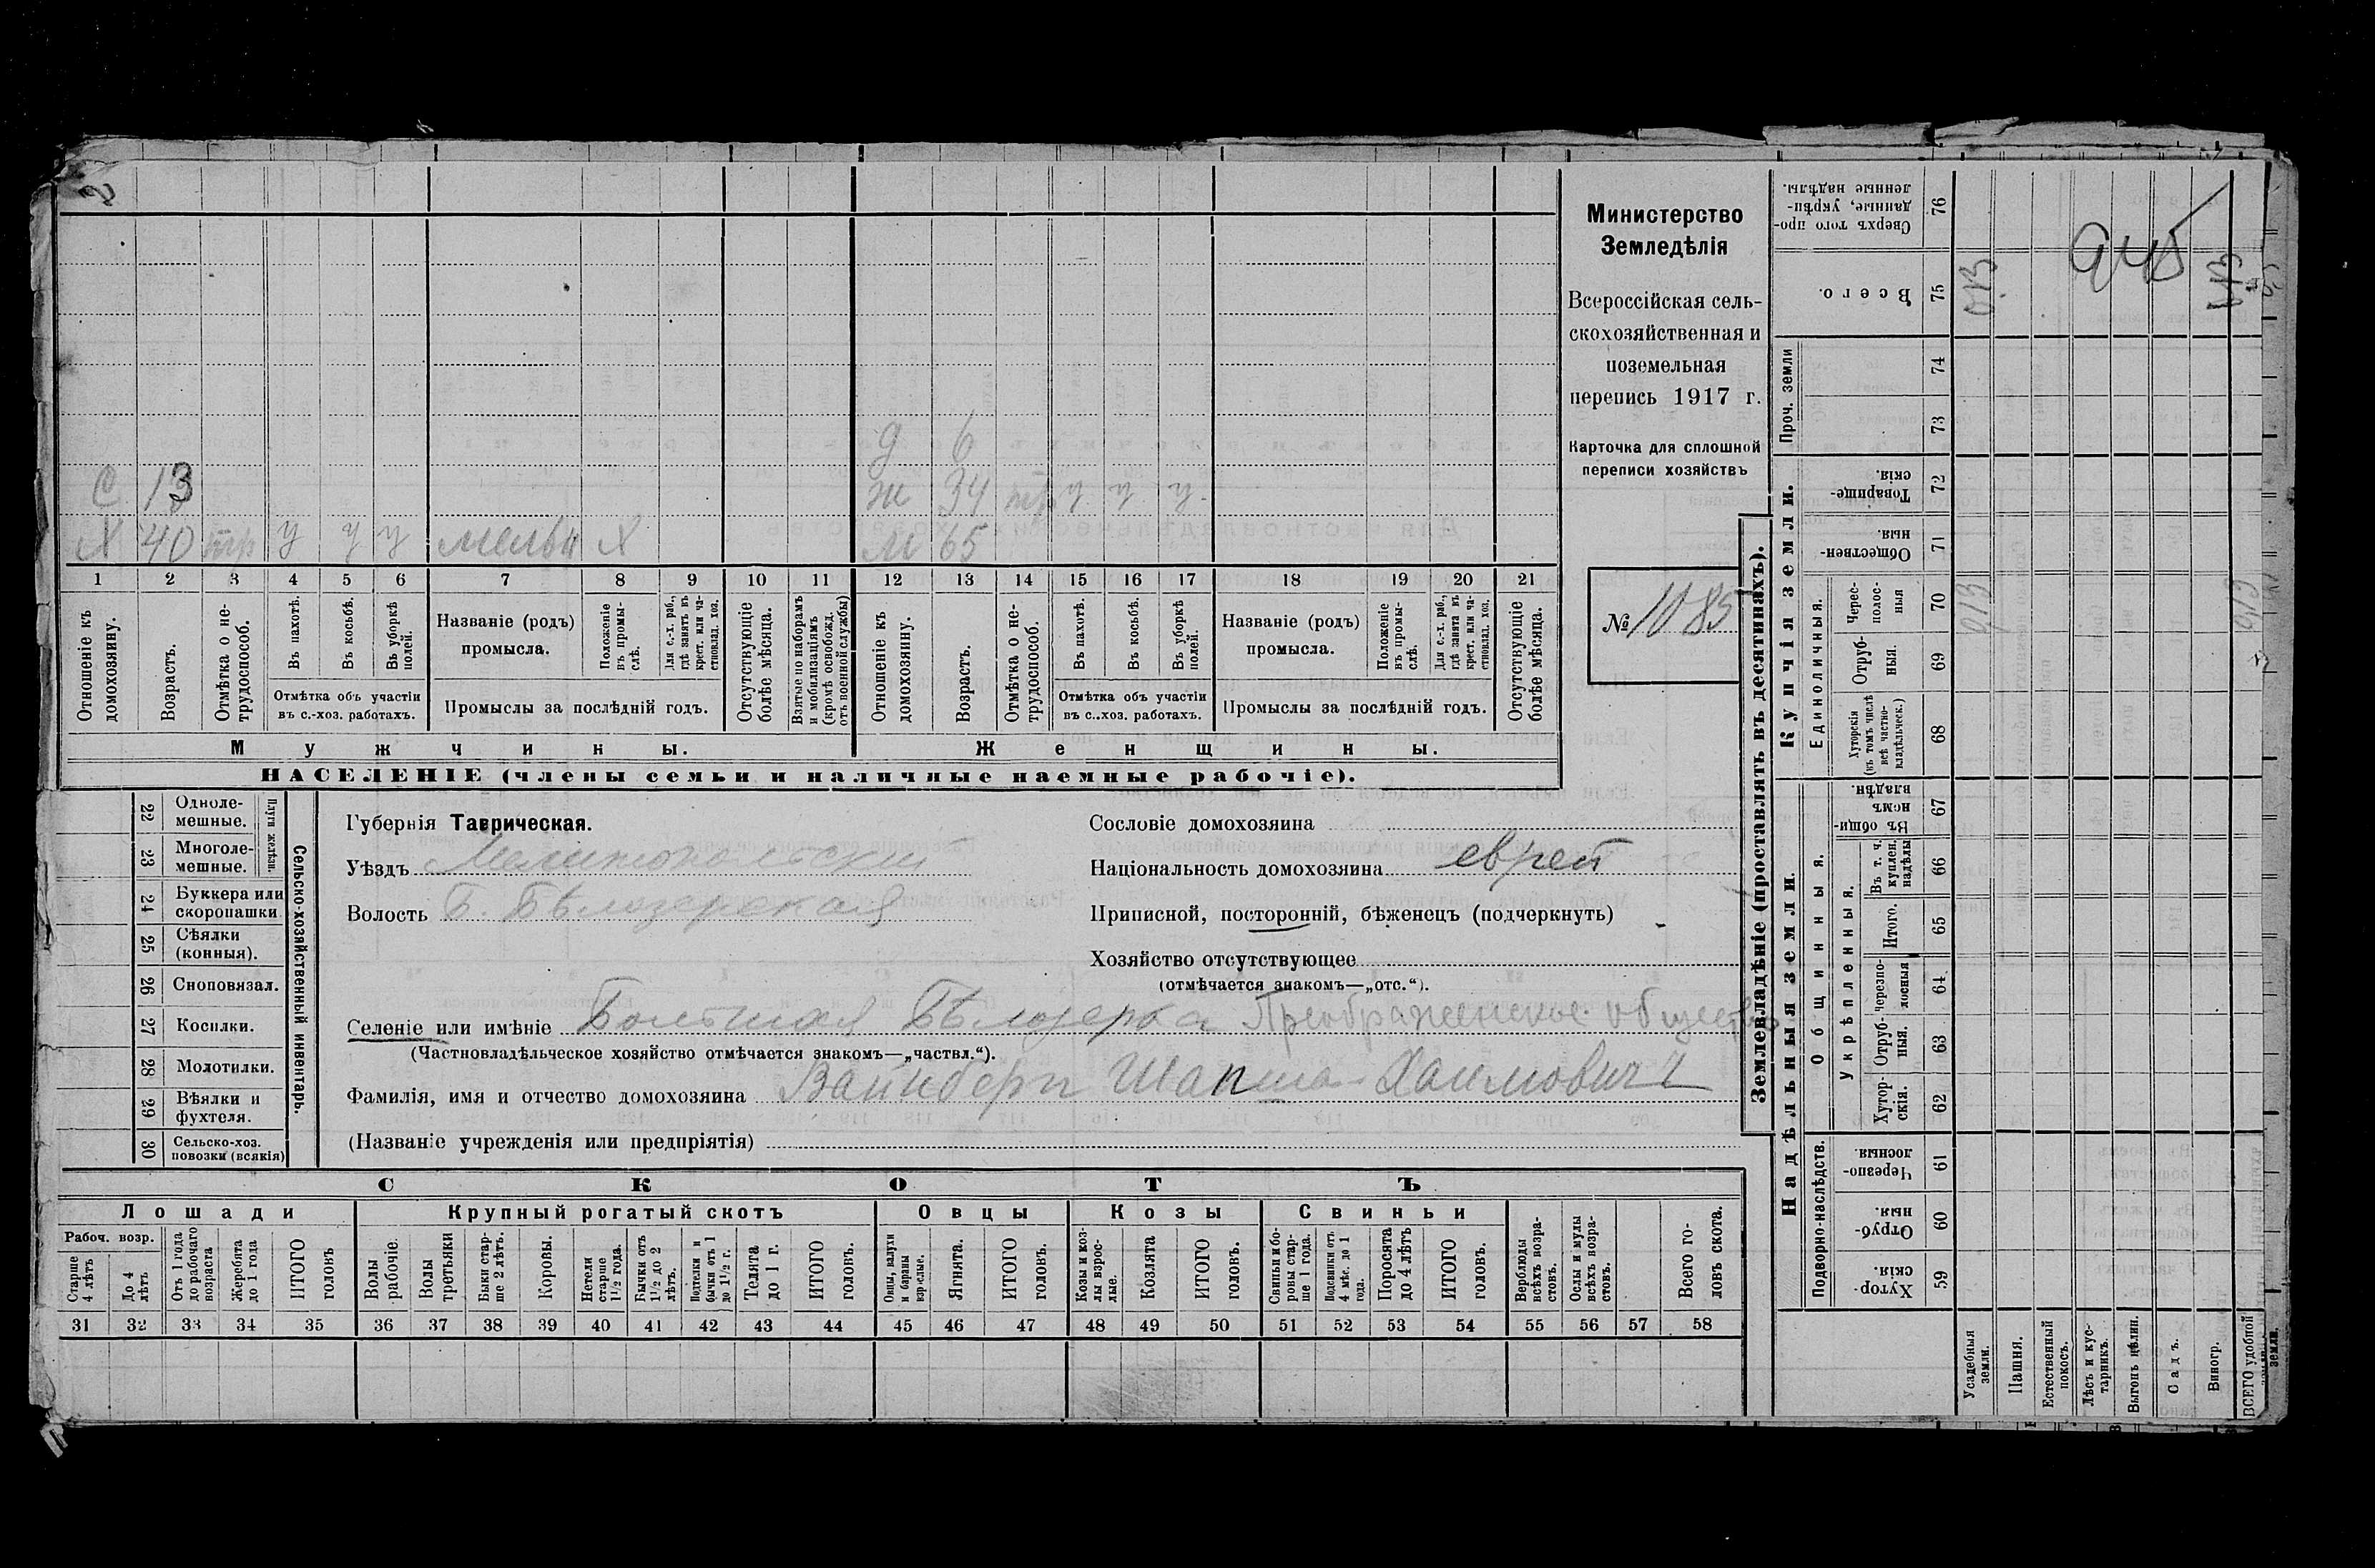 2
945
0.13
0.13
д 6
С 13
ж 34 тр у у у
Х 40 тр у у у мельн Х
м 65
1 2 3 4 5 6 7 8 9 10 11 12 13 14 15 16 17 18 19 20 21
Отношеніе къ домохозяину.
Возрастъ.
Отмѣтка о нетрудоспособ.
Въ пахотѣ.
Въ косьбѣ.
Въ уборкѣ полей.
Отмѣтка объ участіи
въ с.-хоз. работахъ.
Названіе (родъ)
промысла.
Положеніе въ промыслѣ.
Для с.-х. раб., гдѣ занятъ въ крест. или частновлад. хоз.
Промыслы за послѣдній годъ.
Отсутствующіе болѣе мѣсяца.
Взятые по наборамъ и мобилизаціямъ (кромѣ освобожд. отъ военной службы)
Отношеніе къ домохозяину.
Возрастъ.
Отмѣтка о нетрудоспособ.
Въ пахотѣ.
Въ косьбѣ.
Въ уборкѣ полей.
Отмѣтка объ участіи
въ с..хоз. работахъ.
Названіе (родъ)
промысла.
Положеніе въ промыслѣ.
Для с.-х. раб., гдѣ занята въ крест. или частновлад. хоз.
Промыслы за послѣдній годъ.
Отсутствующіе болѣе мѣсяца.
Мужчины.
Женщины.
НАСЕЛЕНІЕ (члены семьи и наличные наемные рабочіе).
Министерство
Земледѣлія
Всероссійская сель-
скохозяйственная и
поземельная
перепись 1917 г.
Карточка для сплошной
переписи хозяйствъ
№ 1085
22 Одноле-
мешные.
23 Многоле-
мешные.
Плуги желѣзн.
24 Буккера или
скоропашки
25 Сѣялки
(конныя).
26 Сноповязал.
27 Косилки.
28 Молотилки.
29 Вѣялки и
фухтеля.
30 Сельско-хоз.
повозки (всякія)
Сельско-хозяйственный инвентарь.
Губернія Таврическая.
Уѣздъ Мелитопольскій
Волость Б. Бѣлозерская
Сословіе домохозяина
Національность домохозяина еврей
Приписной, посторонній, бѣженецъ (подчеркнуть)
Хозяйство отсутствующее
(отмѣчается знакомъ—„отс.“).
Селеніе или имѣніе Большая Бѣлозерка Преображенское общество
(Частновладѣльческое хозяйство отмѣчается знакомъ—„частвл.“).
Фамилія, имя и отчество домохозяина Вайнберг Шапша Хаимович
(Названіе учрежденія или предпріятія)
СКОТЪ
Лошади
Крупный рогатый скотъ
Овцы
Козы
Свиньи
Рабоч. возр.
Старше 4 лѣтъ
До 4 лѣтъ
Отъ 1 года до рабочаго возраста
Жеребята до 1 года
ИТОГО головъ
Волы рабочіе.
Волы третьяки
Быки старше 2 лѣтъ.
Коровы.
Нетели старше 1½ года.
Бычки отъ 1½ до 2 лѣтъ.
Подтелки и бычки отъ 1 до 1½ г.
Телята до 1 г.
ИТОГО головъ.
Овцы, валухи и бараны взрослые.
Ягнята.
ИТОГО головъ.
Козы и козлы взрослые.
Козлята
ИТОГО головъ.
Свиньи и боровы старше 1 года.
Подсвинки отъ 4 мѣс. до 1 года.
Поросята до 4 лѣтъ
ИТОГО головъ.
Верблюды всѣхъ возрастовъ.
Ослы и мулы всѣхъ возрастовъ.
Всего головъ скота.
31 32 33 34 35 36 37 38 39 40 41 42 43 44 45 46 47 48 49 50 51 52 53 54 55 56 57 58
Землевладѣніе (проставлять въ десятинахъ).
Сверхъ того проданные, укрѣпленные надѣлы. 76
Всего. 75
Проч. земли
74
73
Купчія земли.
Товарищескія. 72
Общественныя. 71
Единоличныя.
Чересполосныя 70
0,13
0,13
Отрубныя. 69
Хуторскія (въ томъ числѣ всѣ частновладѣльческ.) 68
Надѣльныя земли.
Общинныя.
Въ общинномъ владѣн. 67
Укрѣпленныя.
Въ т. ч. куплен. надѣлы 66
Итого. 65
Черезполосныя 64
Отрубныя. 63
Хуторскія. 62
Подворно-наслѣдств.
Черезполосныя. 61
Отрубныя. 60
Хуторскія. 59
Усадебныя земли.
Пашня.
Естественный покосъ.
Лѣсъ и кустарникъ.
Выгонъ цѣлин.
Садъ.
Виногр.
ВСЕГО удобной земли.